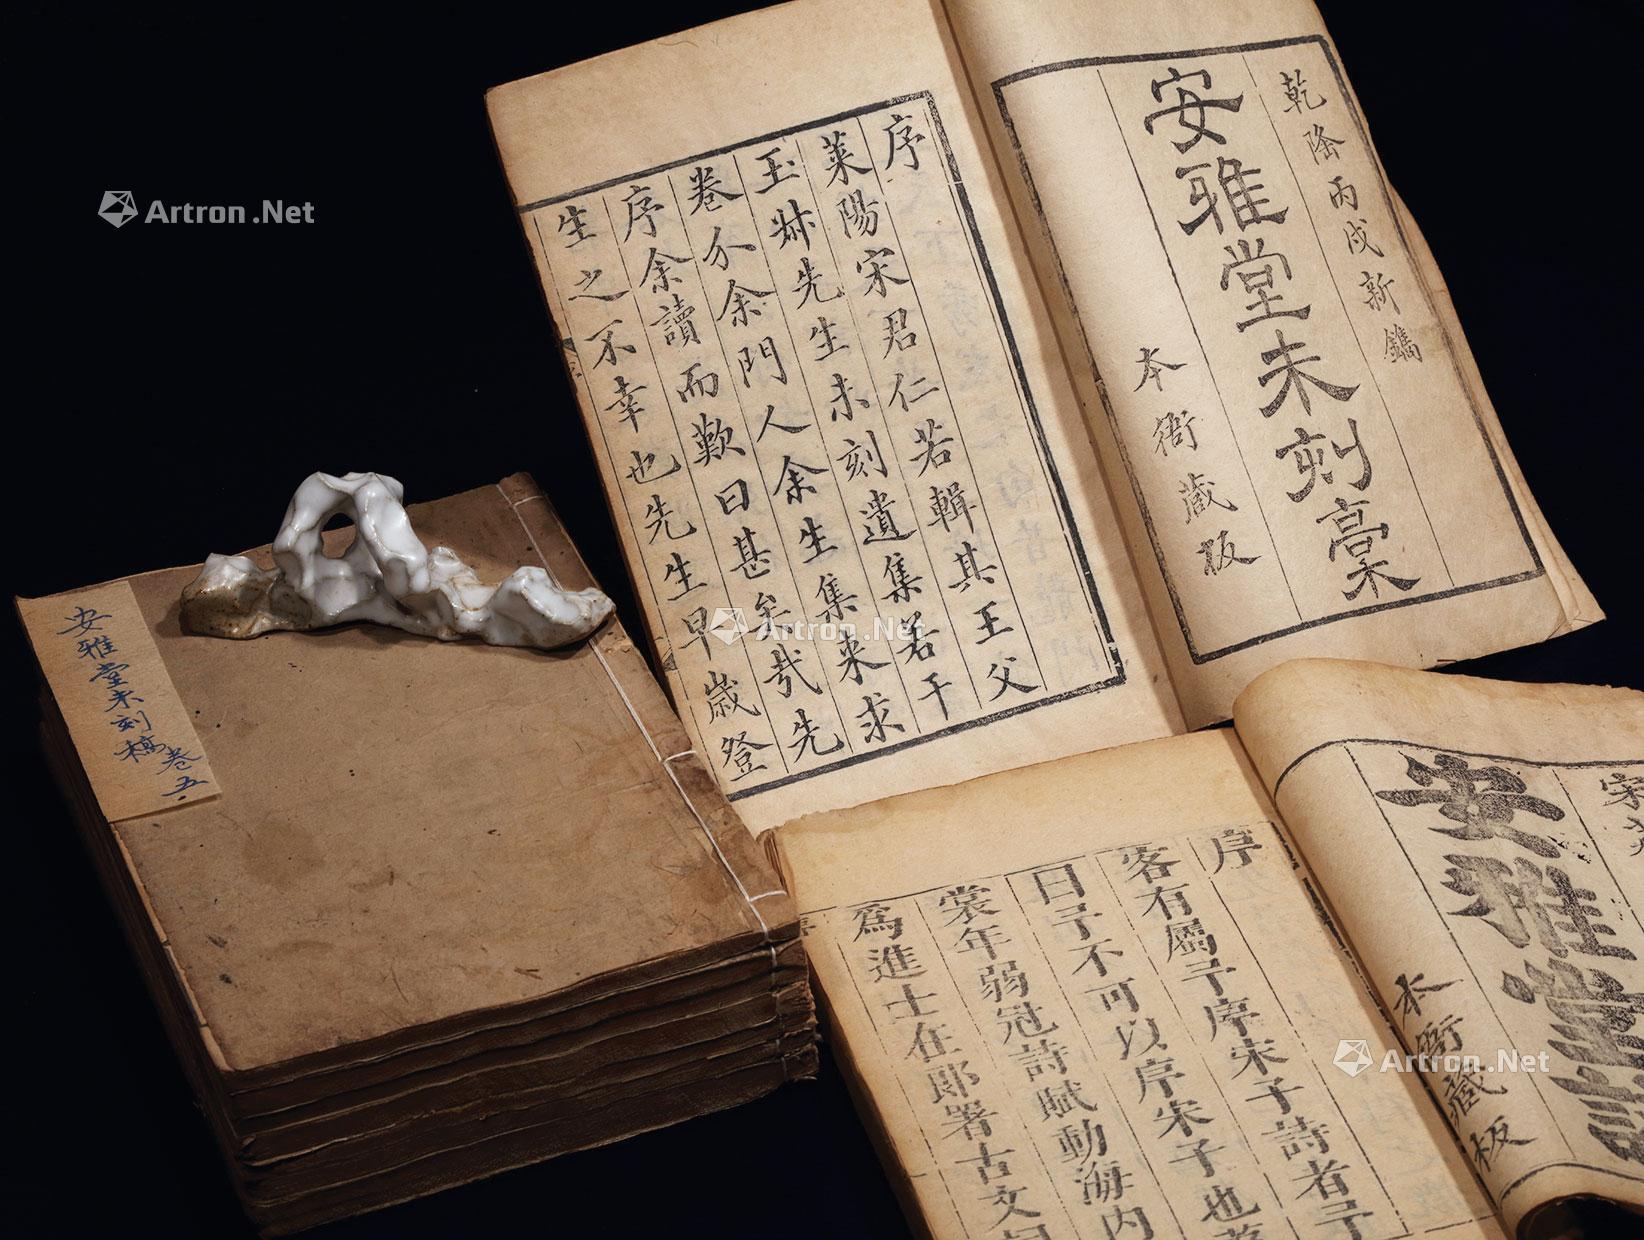 乾隆丙戌新鐫
安雅堂未刻稾
本衙藏板
序
萊陽宋君仁若輯其王父
玉叔先生未刻遺集若干
卷介余門人余生集來求
序余讀而歎曰甚矣哉先
生之不幸也先生早歲登
安雅堂未刻稿
卷五
安雅堂詩
本衙藏板
序
客有屬予序宋子詩者予
曰予不可以序宋子也
裳年弱冠詩賦動海内
爲進士在郎署古文
Artron.Net
Artron.Net
Artron.Net